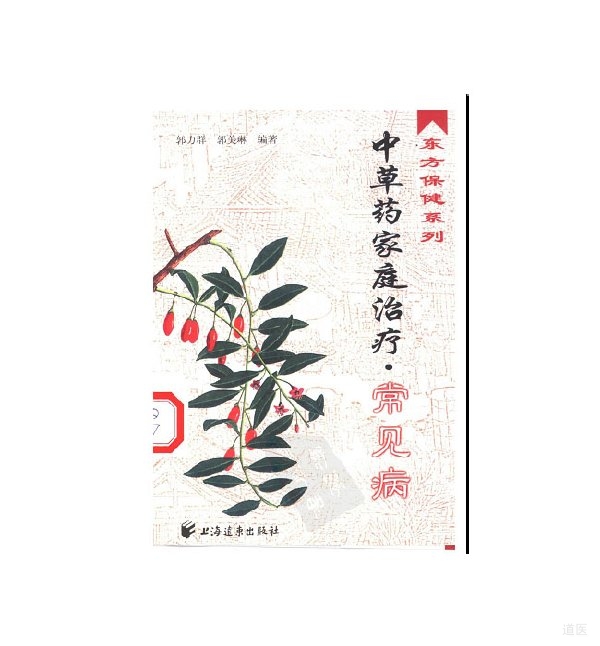 郭力群 郭美琳 编著
东方保健系列
中草药家庭治疗·常见病
上海远东出版社
道医